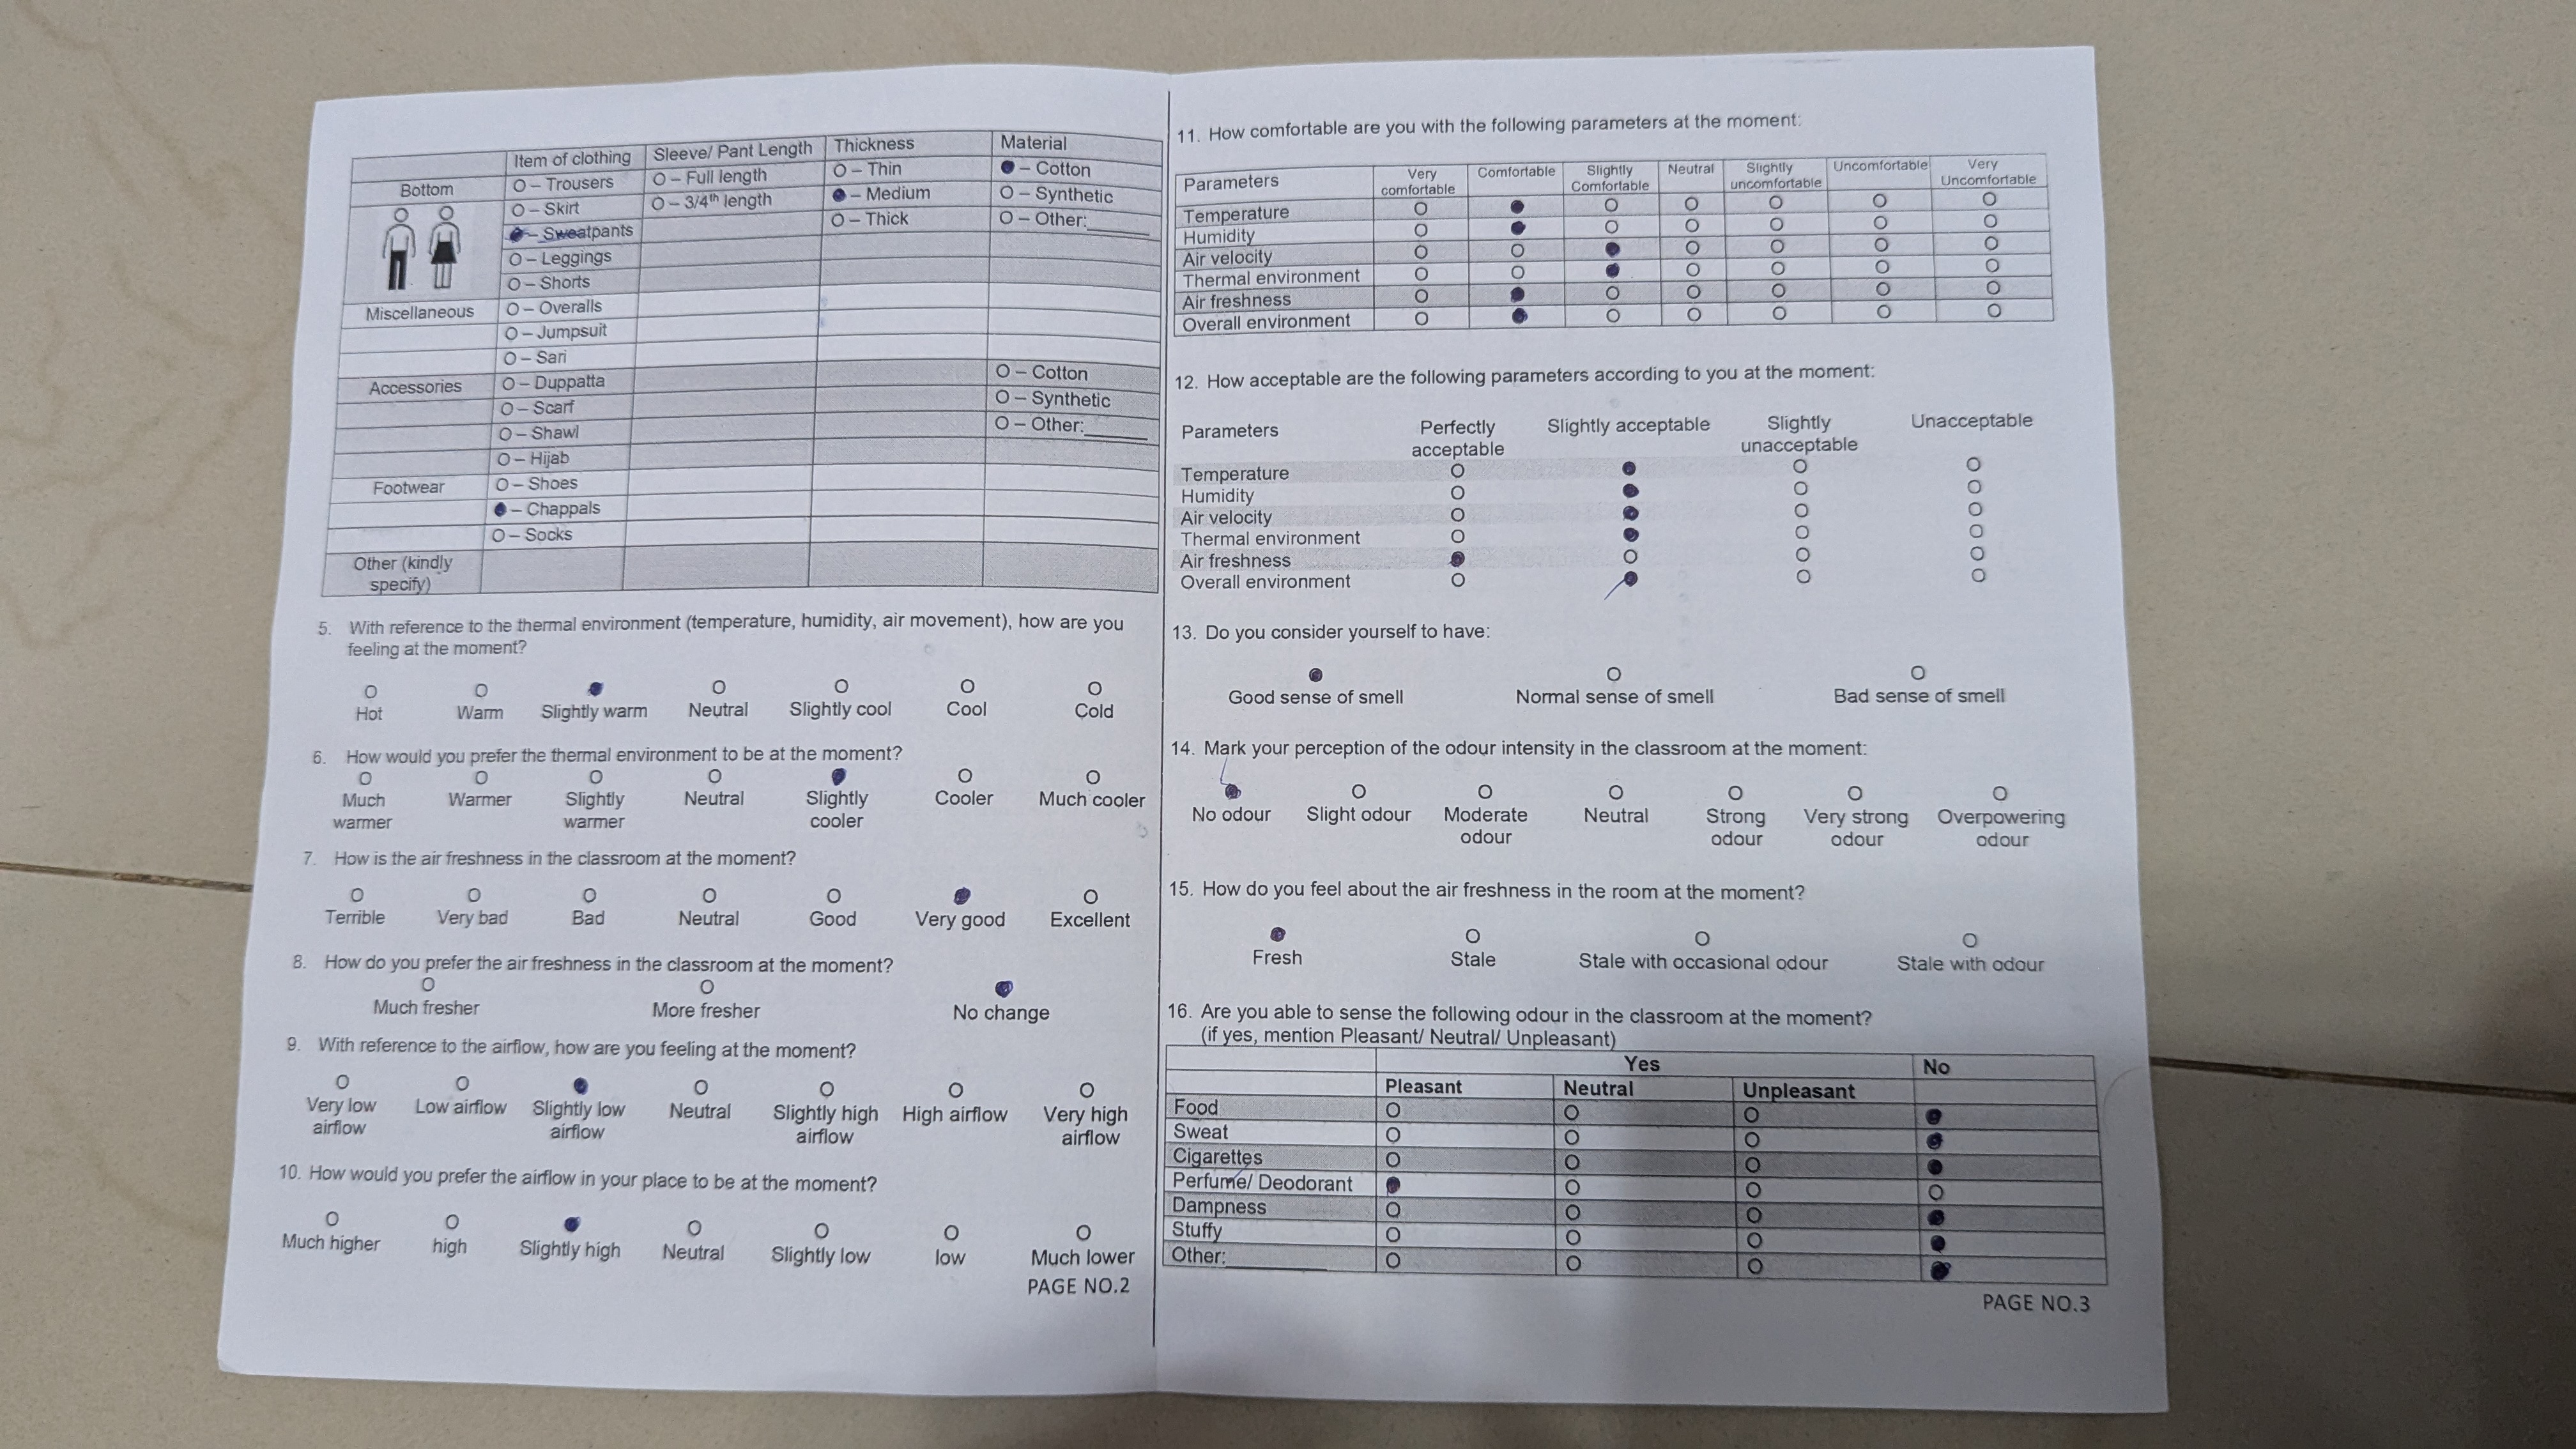 Item of clothing Sleeve/ Pant Length Thickness Material
Bottom O – Trousers O – Full length O – Thin ● – Cotton
O – Skirt O – 3/4th length ● – Medium O – Synthetic
● – Sweatpants O – Thick O – Other:______
O – Leggings
O – Shorts
Miscellaneous O – Overalls
O – Jumpsuit
O – Sari
Accessories O – Duppatta O – Cotton
O – Scarf O – Synthetic
O – Shawl O – Other:______
O – Hijab
Footwear O – Shoes
● – Chappals
O – Socks
Other (kindly
specify)
5. With reference to the thermal environment (temperature, humidity, air movement), how are you
feeling at the moment?
O O ● O O O O
Hot Warm Slightly warm Neutral Slightly cool Cool Cold
6. How would you prefer the thermal environment to be at the moment?
O O O O ● O O
Much Warmer Slightly Neutral Slightly Cooler Much cooler
warmer warmer cooler
7. How is the air freshness in the classroom at the moment?
O O O O O ● O
Terrible Very bad Bad Neutral Good Very good Excellent
8. How do you prefer the air freshness in the classroom at the moment?
O O ●
Much fresher More fresher No change
9. With reference to the airflow, how are you feeling at the moment?
O O ● O O O O
Very low Low airflow Slightly low Neutral Slightly high High airflow Very high
airflow airflow airflow airflow
10. How would you prefer the airflow in your place to be at the moment?
O O ● O O O O
Much higher high Slightly high Neutral Slightly low low Much lower
PAGE NO.2
11. How comfortable are you with the following parameters at the moment:
Parameters Very Comfortable Slightly Neutral Slightly Uncomfortable Very
comfortable Comfortable uncomfortable Uncomfortable
Temperature O ● O O O O O
Humidity O ● O O O O O
Air velocity O O ● O O O O
Thermal environment O O ● O O O O
Air freshness O ● O O O O O
Overall environment O ● O O O O O
12. How acceptable are the following parameters according to you at the moment:
Parameters Perfectly Slightly acceptable Slightly Unacceptable
acceptable unacceptable
Temperature O ● O O
Humidity O ● O O
Air velocity O ● O O
Thermal environment O ● O O
Air freshness ● O O O
Overall environment O ● O O
13. Do you consider yourself to have:
● O O
Good sense of smell Normal sense of smell Bad sense of smell
14. Mark your perception of the odour intensity in the classroom at the moment:
● O O O O O O
No odour Slight odour Moderate Neutral Strong Very strong Overpowering
odour odour odour odour
15. How do you feel about the air freshness in the room at the moment?
● O O O
Fresh Stale Stale with occasional odour Stale with odour
16. Are you able to sense the following odour in the classroom at the moment?
(if yes, mention Pleasant/ Neutral/ Unpleasant)
Yes No
Pleasant Neutral Unpleasant
Food O O O ●
Sweat O O O ●
Cigarettes O O O ●
Perfume/ Deodorant ● O O O
Dampness O O O ●
Stuffy O O O ●
Other:__________ O O O ●
PAGE NO.3